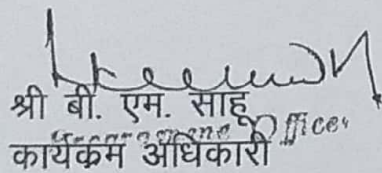 श्री बी. एम. साहू
Programme Officer
कार्यकम अधिकारी